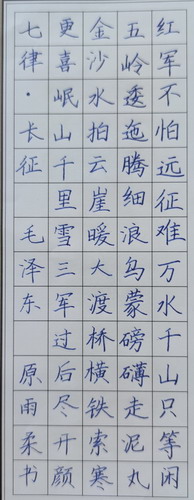 红军不怕远征难万水千山只等闲
五岭逶迤腾细浪乌蒙磅礴走泥丸
金沙水拍云崖暖大渡桥横铁索寒
更喜岷山千里雪三军过后尽开颜
七律·长征 毛泽东 原雨柔书